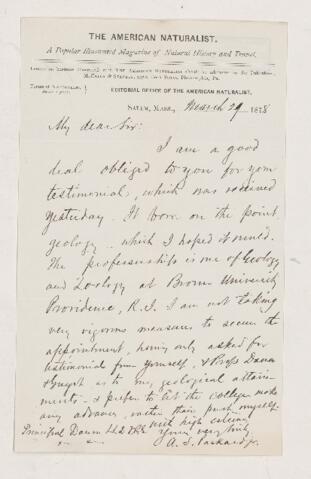 THE AMERICAN NATURALIST.
A Popular Illustrated Magazine of Natural History and Travel.
EDITORIAL OFFICE OF THE AMERICAN NATURALIST,
SALEM, MASS., March 29 1878
My dear Sir:
I am a good
deal obliged to you for your
testimonial, which was received
yesterday. It bore on the point
geology - which I hoped it would.
The professorship is one of Geology
and Zoology at Brown University
Providence, R.I. I am not taking
very vigorous measures to secure the
appointment, having only asked for
testimonial from yourself, & Profs Dana
& Guyot as to my geological attain-
ments - & prefer to let the college make
any advance, rather than push myself.
With high esteem
Principal Dawson LLD FRS
Yours very truly
A. S. Packard Jr.